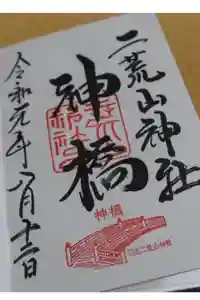 二荒山神社
神橋
令和元年八月十二日
神橋
日光二荒山神社